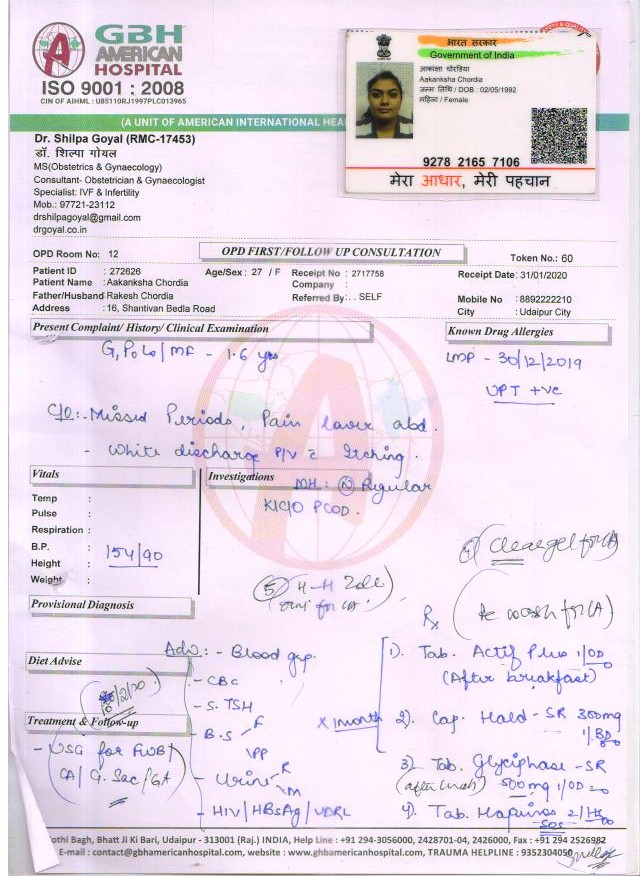 GBH
AMERICAN
HOSPITAL
ISO 9001 : 2008
CIN OF AIHML : U85110RJ1997PLC013965
(A UNIT OF AMERICAN INTERNATIONAL HEA
भारत सरकार
Government of India
आकांक्षा चोरड़िया
Aakanksha Chordia
जन्म तिथि / DOB : 02/05/1992
महिला / Female
9278 2165 7106
मेरा आधार, मेरी पहचान
Dr. Shilpa Goyal (RMC-17453)
डॉ. शिल्पा गोयल
MS(Obstetrics & Gynaecology)
Consultant- Obstetrician & Gynaecologist
Specialist: IVF & Infertility
Mob.: 97721-23112
drshilpagoyal@gmail.com
drgoyal.co.in
OPD Room No: 12
OPD FIRST/FOLLOW UP CONSULTATION
Token No.: 60
Patient ID : 272626 Age/Sex : 27 / F Receipt No : 2717758 Receipt Date: 31/01/2020
Patient Name : Aakanksha Chordia Company :
Father/Husband Rakesh Chordia Referred By: . SELF Mobile No : 8892222210
Address : 16, Shantivan Bedla Road City : Udaipur City
Present Complaint/ History/ Clinical Examination
Known Drug Allergies
G1P0L0/MF - 1.6 yrs
LMP - 30/12/2019
UPT +ve
C/O:- Missed Periods, Pain lower abd.
- White discharge P/V c Itching.
Vitals
Investigations
MH: (N) Regular
K/C/O PCOD.
Temp :
Pulse :
Respiration :
B.P. : 154/90
Height :
Weight :
Provisional Diagnosis
(4) Cleargel for LA
(5) H-H Zole
for LA
wash for LA
Rx
Adv:- Blood grp.
- CBC
- S. TSH
- B.S F
PP
- Urine R
M
- HIV/HBsAg/VDRL
Diet Advise
Treatment & Follow-up
- USG for FWB/
CA/G. Sac/GA
x 1 month
1). Tab. Actif Plus 1/OD
(After breakfast)
2). Cap. Hald-SR 300mg
1/BD
3) Tab. Glyciphase-SR
500mg 1/OD
4). Tab.
SOS
othi Bagh, Bhatt Ji Ki Bari, Udaipur - 313001 (Raj.) INDIA, Help Line : +91 294-3056000, 2428701-04, 2426000, Fax : +91 294 2526982
E-mail : contact@gbhamericanhospital.com, website : www.gbhamericanhospital.com, TRAUMA HELPLINE : 9352304050